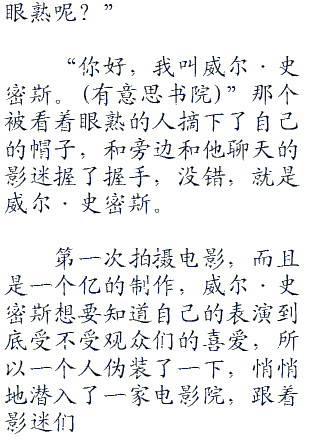 眼熟呢？”
“你好，我叫威尔·史
密斯。(有意思书院)”那个
被看着眼熟的人摘下了自己
的帽子，和旁边和他聊天的
影迷握了握手，没错，就是
威尔·史密斯。
第一次拍摄电影，而且
是一个亿的制作，威尔·史
密斯想要知道自己的表演到
底受不受观众们的喜爱，所
以一个人伪装了一下，悄悄
地潜入了一家电影院，跟着
影迷们